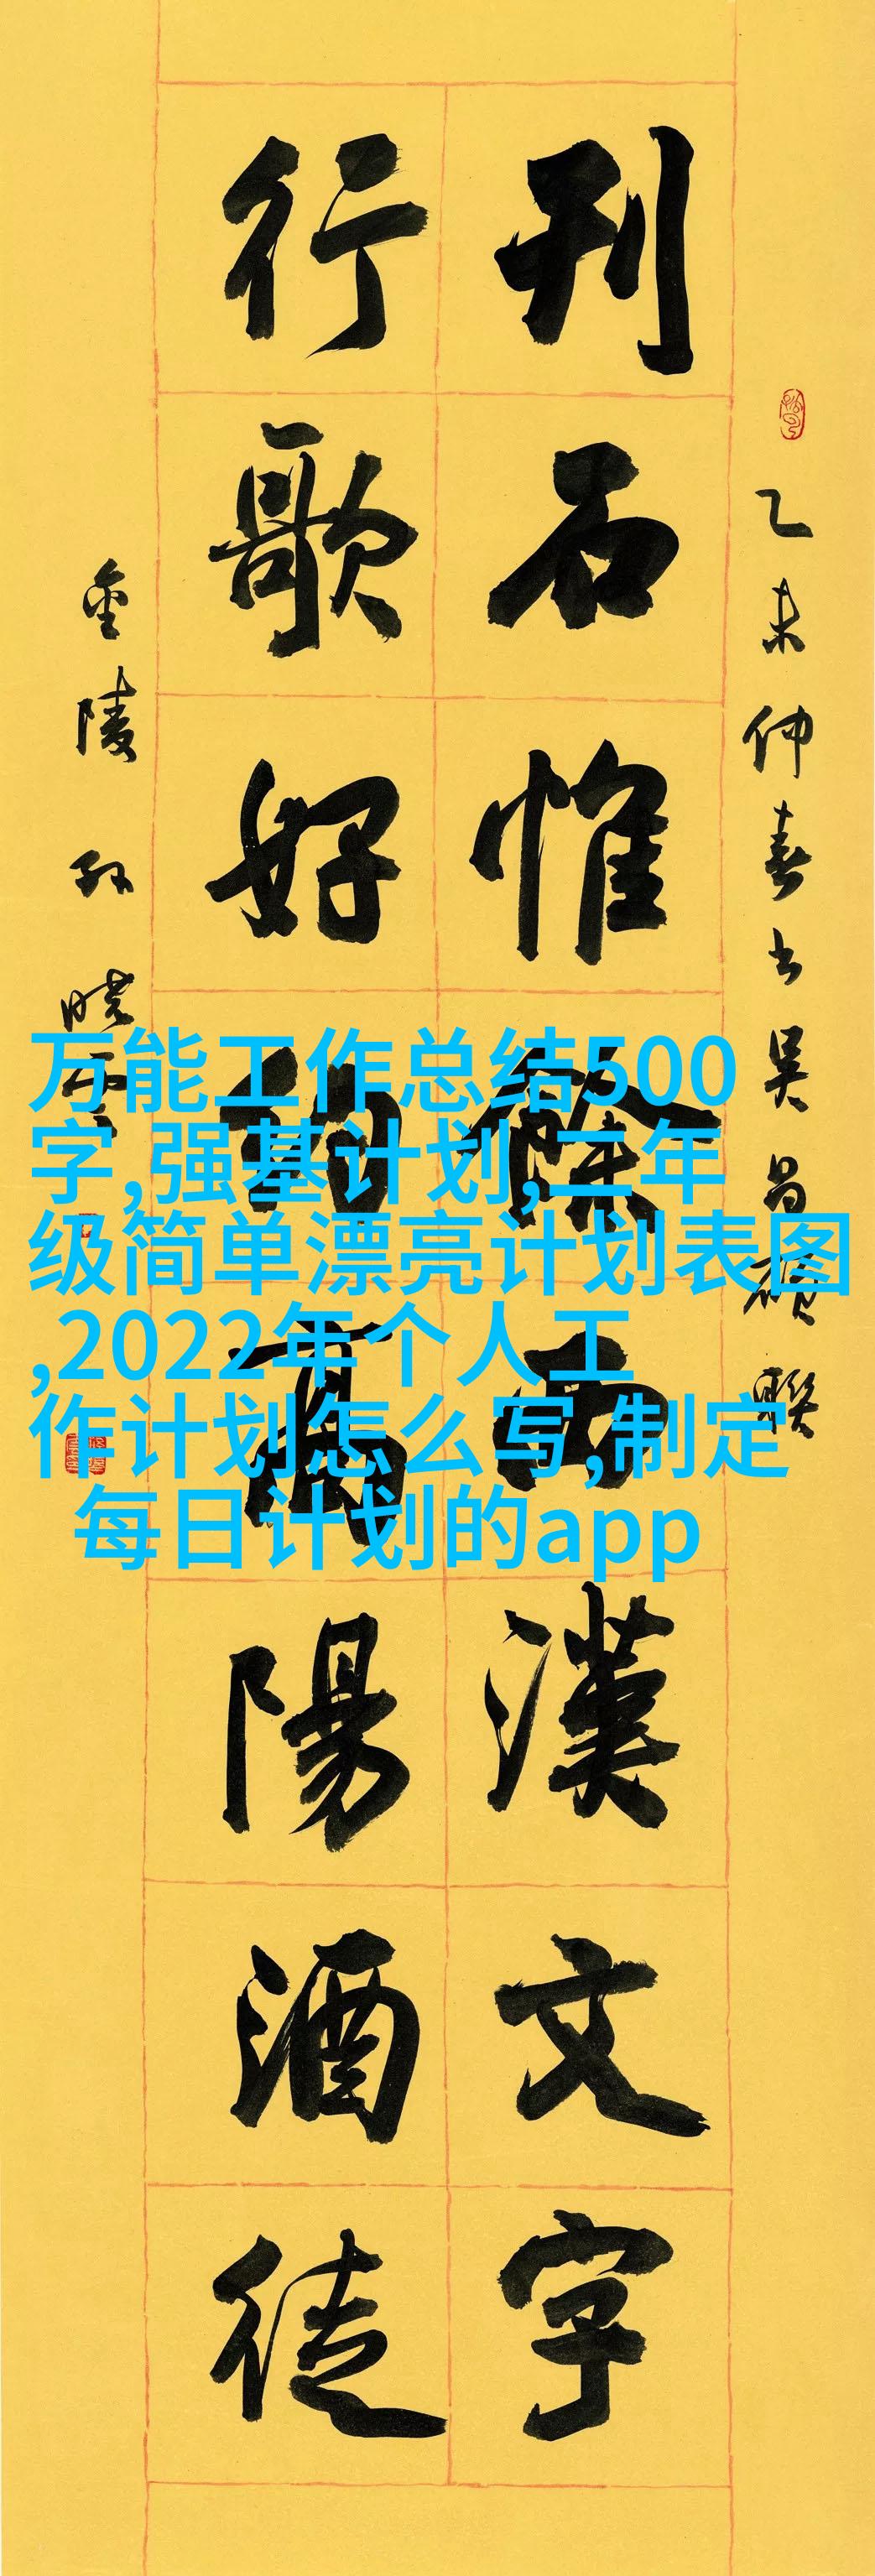 刊石惟餘西漢文字
行歌好約高陽酒徒
乙未仲春书吳昌碩聯
金陵孙曉雲
万能工作总结500
字,强基计划,二年
级简单漂亮计划表图
,2022年个人工
作计划怎么写,制定
每日计划的app